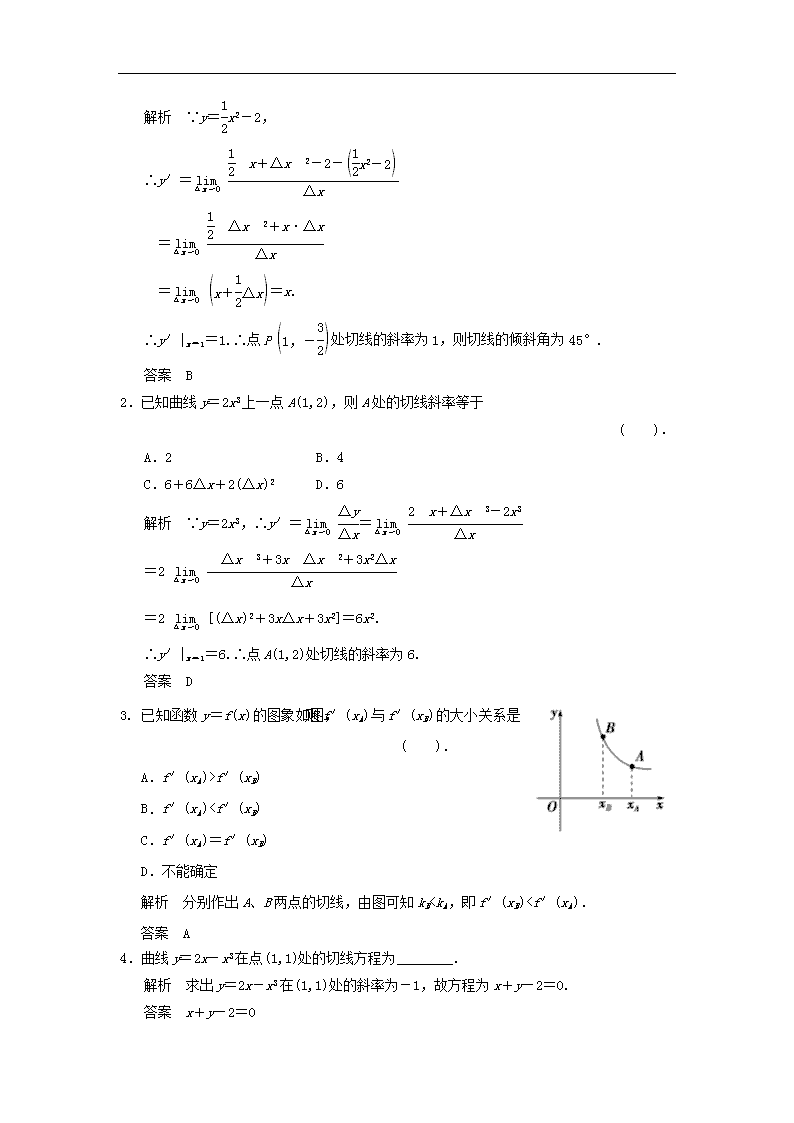 解析　∵y＝1/2x²－2，
∴y′＝lim Δx→0 (1/2　x＋Δx　²－2－(1/2x²－2))/Δx
＝lim Δx→0 (1/2　Δx　²＋x·Δx)/Δx
＝lim Δx→0 (x＋1/2Δx)＝x.
∴y′|x＝1＝1.∴点P(1，－3/2)处切线的斜率为1，则切线的倾斜角为45°.
答案　B
2．已知曲线y＝2x³上一点A(1,2)，则A处的切线斜率等于
(　　).
A．2　　B．4
C．6＋6Δx＋2(Δx)²　　D．6
解析　∵y＝2x³，∴y′＝lim Δx→0 Δy/Δx＝lim Δx→0 (2　x＋Δx　³－2x³)/Δx
＝2 lim Δx→0 (　Δx　³＋3x　Δx　²＋3x²Δx)/Δx
＝2 lim Δx→0 [(Δx)²＋3xΔx＋3x²]＝6x².
∴y′|x＝1＝6.∴点A(1,2)处切线的斜率为6.
答案　D
3. 已知函数y＝f(x)的图象如图，则f′(xA)与f′(xB)的大小关系是
(　　).
A．f′(xA)>f′(xB)
B．f′(xA)<f′(xB)
C．f′(xA)＝f′(xB)
D．不能确定
y
B
A
O xB xA x
解析　分别作出A、B两点的切线，由图可知kB<kA，即f′(xB)<f′(xA).
答案　A
4．曲线y＝2x－x³在点(1,1)处的切线方程为________.
解析　求出y＝2x－x³在(1,1)处的斜率为－1，故方程为x＋y－2＝0.
答案　x＋y－2＝0